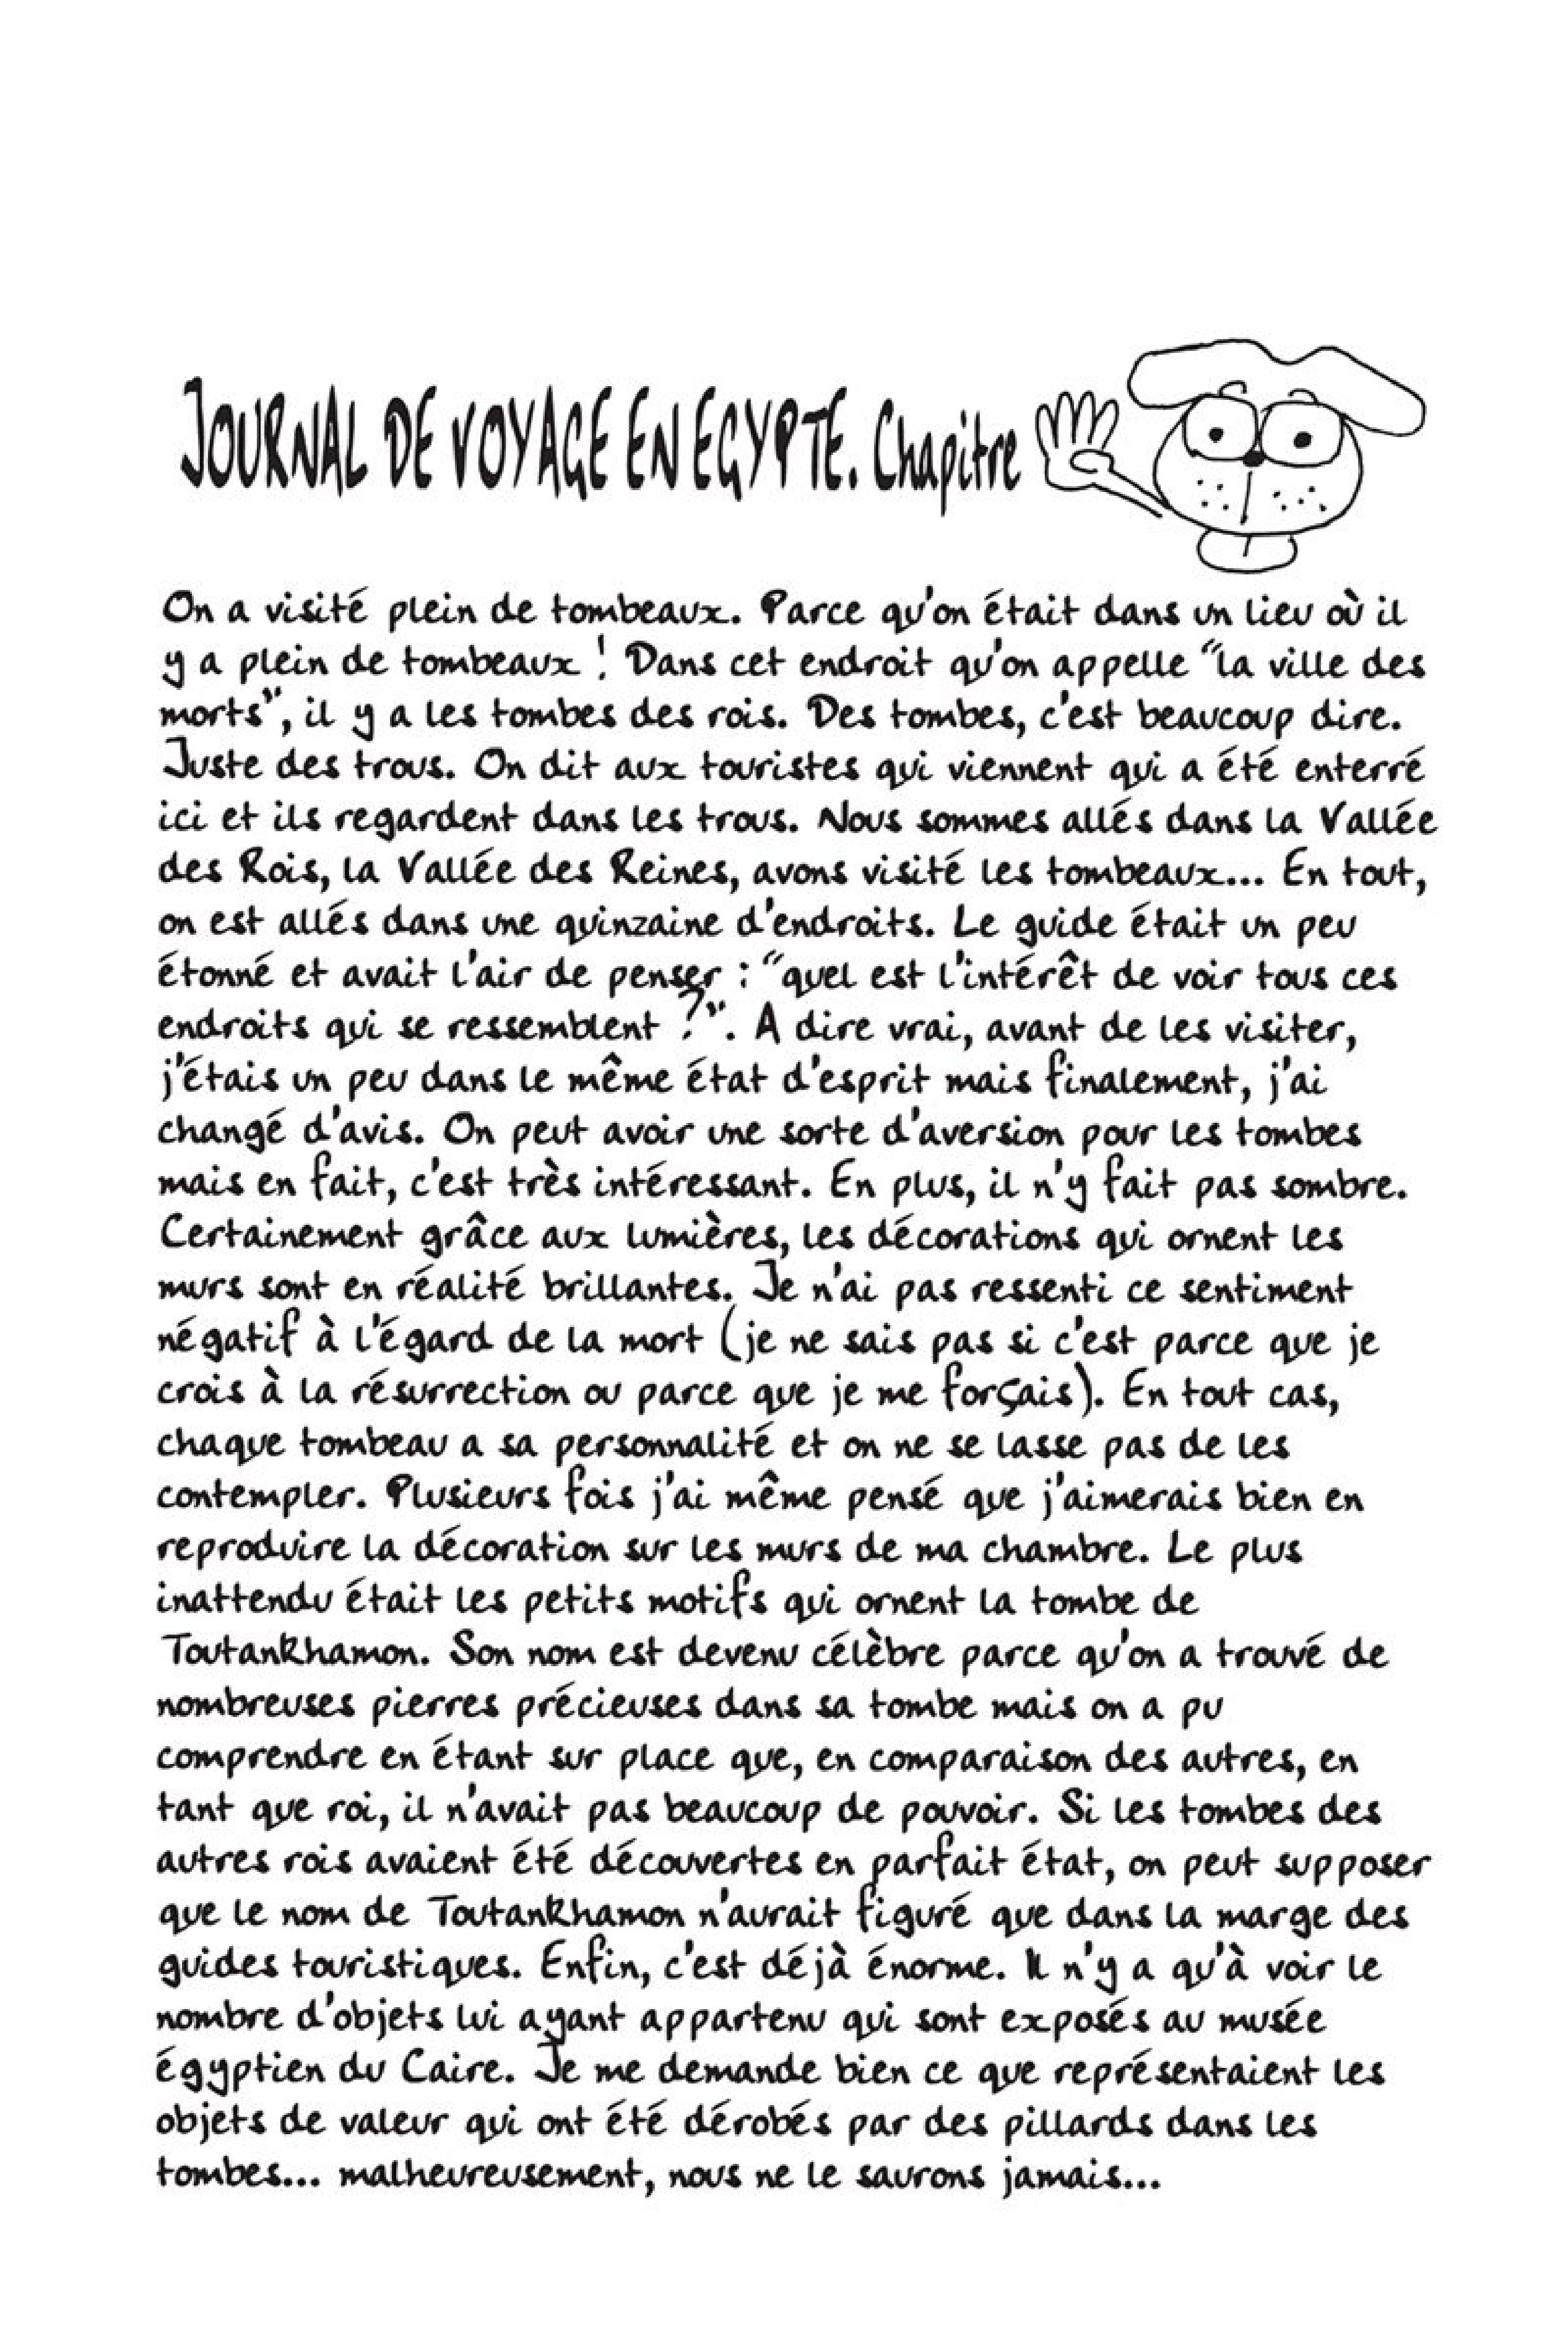 JOURNAL DE VOYAGE EN EGYPTE. Chapitre
On a visité plein de tombeaux. Parce qu'on était dans un lieu où il
y a plein de tombeaux ! Dans cet endroit qu'on appelle "la ville des
morts", il y a les tombes des rois. Des tombes, c'est beaucoup dire.
Juste des trous. On dit aux touristes qui viennent qui a été enterré
ici et ils regardent dans les trous. Nous sommes allés dans la Vallée
des Rois, la Vallée des Reines, avons visité les tombeaux... En tout,
on est allés dans une quinzaine d'endroits. Le guide était un peu
étonné et avait l'air de penser : "quel est l'intérêt de voir tous ces
endroits qui se ressemblent ?". A dire vrai, avant de les visiter,
j'étais un peu dans le même état d'esprit mais finalement, j'ai
changé d'avis. On peut avoir une sorte d'aversion pour les tombes
mais en fait, c'est très intéressant. En plus, il n'y fait pas sombre.
Certainement grâce aux lumières, les décorations qui ornent les
murs sont en réalité brillantes. Je n'ai pas ressenti ce sentiment
négatif à l'égard de la mort (je ne sais pas si c'est parce que je
crois à la résurrection ou parce que je me forçais). En tout cas,
chaque tombeau a sa personnalité et on ne se lasse pas de les
contempler. Plusieurs fois j'ai même pensé que j'aimerais bien en
reproduire la décoration sur les murs de ma chambre. Le plus
inattendu était les petits motifs qui ornent la tombe de
Toutankhamon. Son nom est devenu célèbre parce qu'on a trouvé de
nombreuses pierres précieuses dans sa tombe mais on a pu
comprendre en étant sur place que, en comparaison des autres, en
tant que roi, il n'avait pas beaucoup de pouvoir. Si les tombes des
autres rois avaient été découvertes en parfait état, on peut supposer
que le nom de Toutankhamon n'aurait figuré que dans la marge des
guides touristiques. Enfin, c'est déjà énorme. Il n'y a qu'à voir le
nombre d'objets lui ayant appartenu qui sont exposés au musée
égyptien du Caire. Je me demande bien ce que représentaient les
objets de valeur qui ont été dérobés par des pillards dans les
tombes... malheureusement, nous ne le saurons jamais...